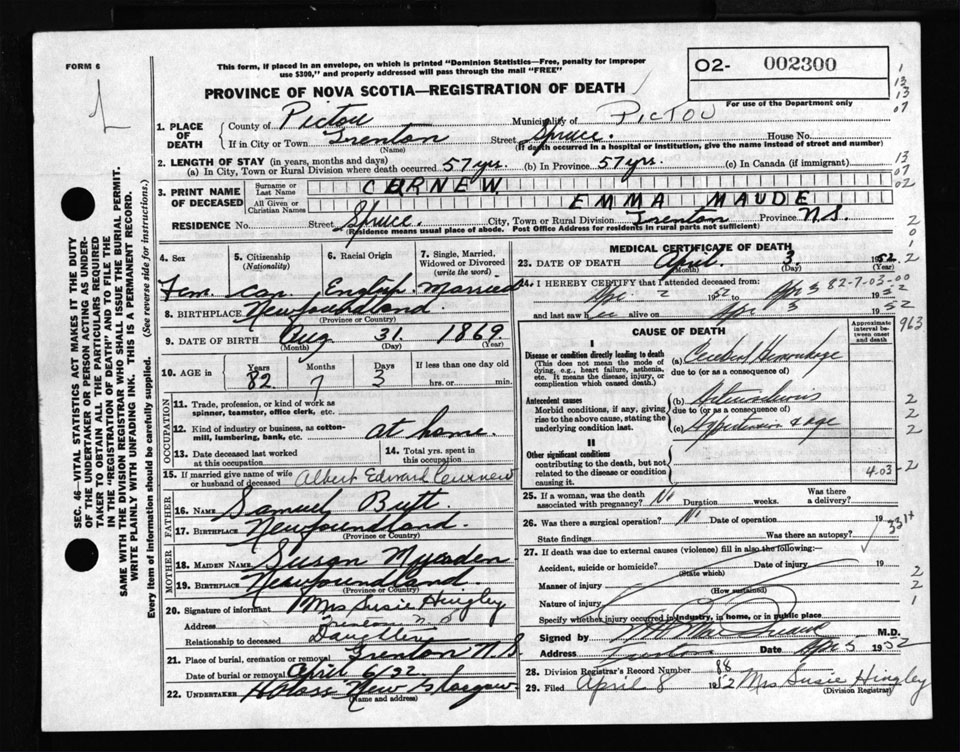 FORM 6
This form, if placed in an envelope, on which is printed "Dominion Statistics—Free, penalty for improper
use $300," and properly addressed will pass through the mail "FREE"
O2- 002300
For use of the Department only
PROVINCE OF NOVA SCOTIA—REGISTRATION OF DEATH
1. PLACE OF DEATH
County of Pictou Municipality of PICTOU
If in City or Town Trenton Street Spruce. House No.
(Name) (If death occurred in a hospital or institution, give the name instead of street and number)
2. LENGTH OF STAY (in years, months and days)
(a) In City, Town or Rural Division where death occurred 57 yrs. (b) In Province 57 yrs. (c) In Canada (if immigrant)
3. PRINT NAME OF DECEASED
Surname or Last Name CURNEW
All Given or Christian Names EMMA MAUDE
RESIDENCE No. Street Spruce. City, Town or Rural Division Trenton Province N.S.
(Residence means usual place of abode. Post Office Address for residents in rural parts not sufficient)
4. Sex
Fem.
5. Citizenship (Nationality)
Can.
6. Racial Origin
English.
7. Single, Married, Widowed or Divorced (write the word)
Married
8. BIRTHPLACE Newfoundland.
(Province or Country)
9. DATE OF BIRTH Aug 31. 1869
(Month) (Day) (Year)
10. AGE in Years Months Days If less than one day old
82 7 3 hrs. or min.
OCCUPATION
11. Trade, profession, or kind of work as
spinner, teamster, office clerk, etc.
12. Kind of industry or business, as cotton-
mill, lumbering, bank, etc. at home.
13. Date deceased last worked
at this occupation
14. Total yrs. spent in
this occupation
15. If married give name of wife
or husband of deceased Albert Edward Curnew
FATHER
16. NAME Samuel Butt
17. BIRTHPLACE Newfoundland.
(Province or Country)
MOTHER
18. MAIDEN NAME Susan
19. BIRTHPLACE Newfoundland.
(Province or Country)
20. Signature of informant Mrs Susie Hingley
Address Trenton N.S
Relationship to deceased Daughter
21. Place of burial, cremation or removal Trenton N.S.
Date of burial or removal April 6/52
22. UNDERTAKER New Glasgow
(Name and address)
MEDICAL CERTIFICATE OF DEATH
23. DATE OF DEATH April. 3. 1952
(Month) (Day)
24. I HEREBY CERTIFY that I attended deceased from:
Apr 2 1952 to Apr 3 1952
82-7-03-00
and last saw her alive on Apr 3 1952
963
CAUSE OF DEATH
Approximate interval between onset and death
I
Disease or condition directly leading to death
(This does not mean the mode of
dying, e.g., heart failure, asthenia,
etc. It means the disease, injury, or
complication which caused death.)
(a) Cerebral Hemorrhage
due to (or as a consequence of)
Antecedent causes
Morbid conditions, if any, giving
rise to the above cause, stating the
underlying condition last.
(b) Arteriosclerosis
due to (or as a consequence of)
(c) Hypertension & age
II
Other significant conditions
contributing to the death, but not
related to the disease or condition
causing it.
403-2
25. If a woman, was the death
associated with pregnancy? No Duration weeks. Was there a delivery?
26. Was there a surgical operation? No Date of operation 19
State findings Was there an autopsy?
27. If death was due to external causes (violence) fill in also the following:—
Accident, suicide or homicide? Date of injury 19
(State which)
Manner of injury
(How sustained)
Nature of injury
Specify whether injury occurred in industry, in home, or in public place
Signed by M.D.
Address Trenton Date Apr 5 1952
28. Division Registrar's Record Number 88
29. Filed April 8 1952 Mrs Susie Hingley
(Division Registrar)
SEC. 46—VITAL STATISTICS ACT MAKES IT THE DUTY
OF THE UNDERTAKER OR PERSON ACTING AS UNDER-
TAKER TO OBTAIN ALL THE PARTICULARS REQUIRED
IN THE "REGISTRATION OF DEATH" AND TO FILE THE
SAME WITH THE DIVISION REGISTRAR WHO SHALL ISSUE THE BURIAL PERMIT.
WRITE PLAINLY WITH UNFADING INK. THIS IS A PERMANENT RECORD.
Every item of information should be carefully supplied. (See reverse side for instructions.)